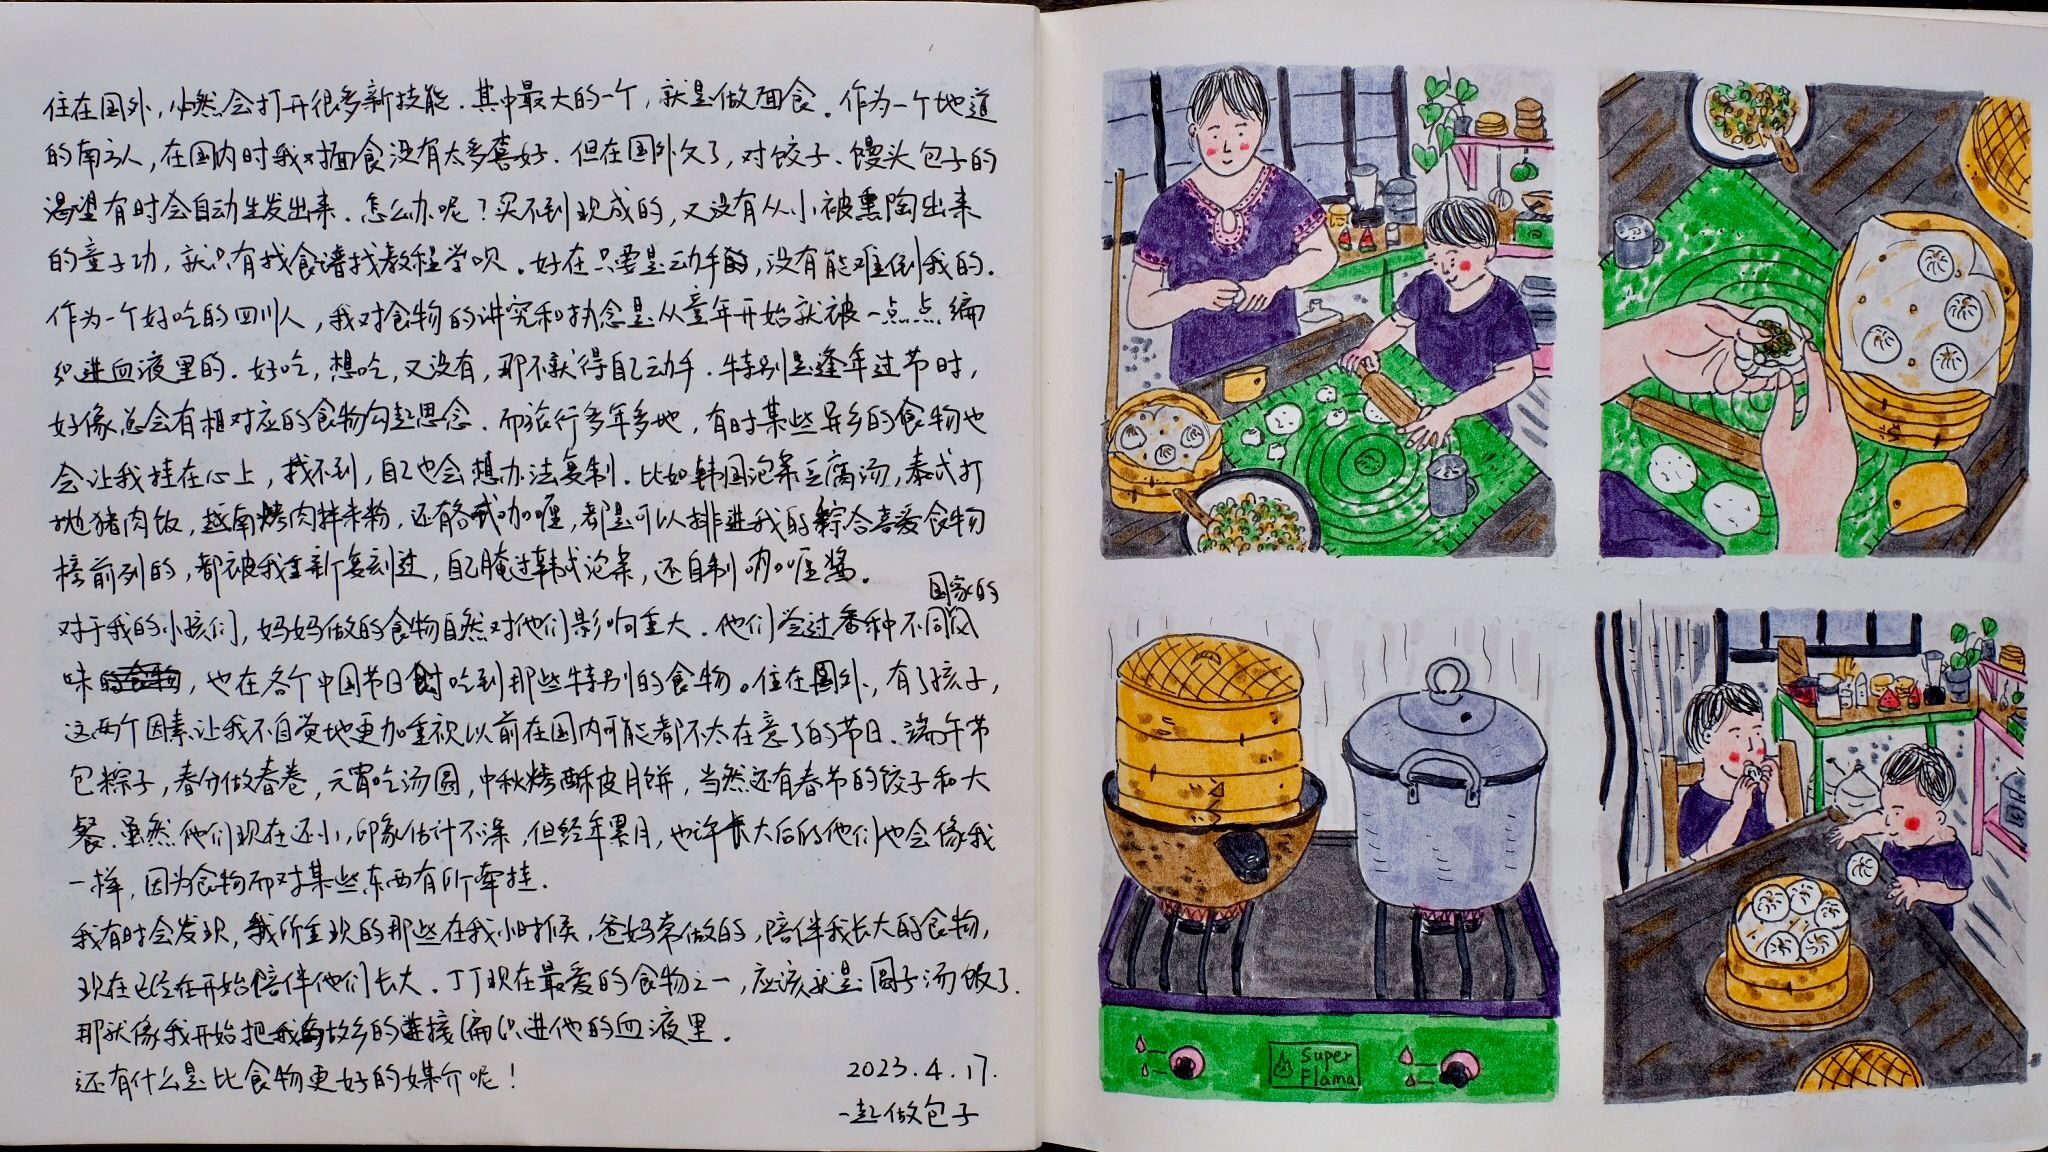 住在国外，必然会打开很多新技能．其中最大的一个，就是做面食。作为一个地道
的南方人，在国内时我对面食没有太多喜好．但在国外久了，对饺子、馒头包子的
渴望有时会自动生发出来．怎么办呢？买不到现成的，又没有从小被熏陶出来
的童子功，就只有找食谱找教程学呗。好在只要是动手的，没有能难倒我的．
作为一个好吃的四川人，我对食物的讲究和执念是从童年开始就被一点点编
织进血液里的．好吃，想吃，又没有，那不就得自己动手．特别是逢年过节时，
好像总会有相对应的食物勾起思念．而旅行多年多地，有时某些异乡的食物也
会让我挂在心上，找不到，自己也会想办法复制．比如韩国泡菜豆腐汤，泰式打
抛猪肉饭，越南烤肉拌米粉，还有各式咖喱，都是可以排进我的综合喜爱食物
榜前列的，都被我重新复刻过，自己腌过韩式泡菜，还自制咖喱酱。
对于我的小孩们，妈妈做的食物自然对他们影响重大．他们尝过各种不同国家的风
味，也在各个中国节日时吃到那些特别的食物。住在国外，有了孩子，
这两个因素让我不自觉地更加重视以前在国内可能都不太在意了的节日．端午节
包粽子，春分做春卷，元宵吃汤圆，中秋烤酥皮月饼，当然还有春节的饺子和大
餐．虽然他们现在还小，印象估计不深，但经年累月，也许长大后的他们也会像我
一样，因为食物而对某些东西有所牵挂．
我有时会发现，我所重现的那些在我小时候，爸妈常做的，陪伴我长大的食物，
现在已经在开始陪伴他们长大．丁丁现在最爱的食物之一，应该就是圆子汤饭了．
那就像我开始把我与故乡的连接编织进他的血液里．
还有什么是比食物更好的媒介呢！
2023.4.17.
一起做包子
Super
Flama